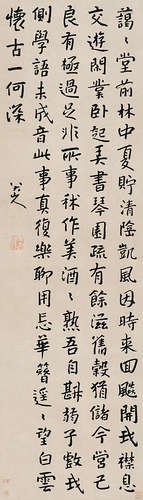 藹〻堂前林中夏貯清陰凱風因時来回飈開我襟息
交遊閑業卧起弄書琴園蔬有餘滋舊穀猶儲今營己
良有極過足非所舂秫作美酒〻熟吾自斟弱子戲我
側學語未成音此事真復樂聊用忘華簪遙〻望白雲
懷古一何深
八大山人